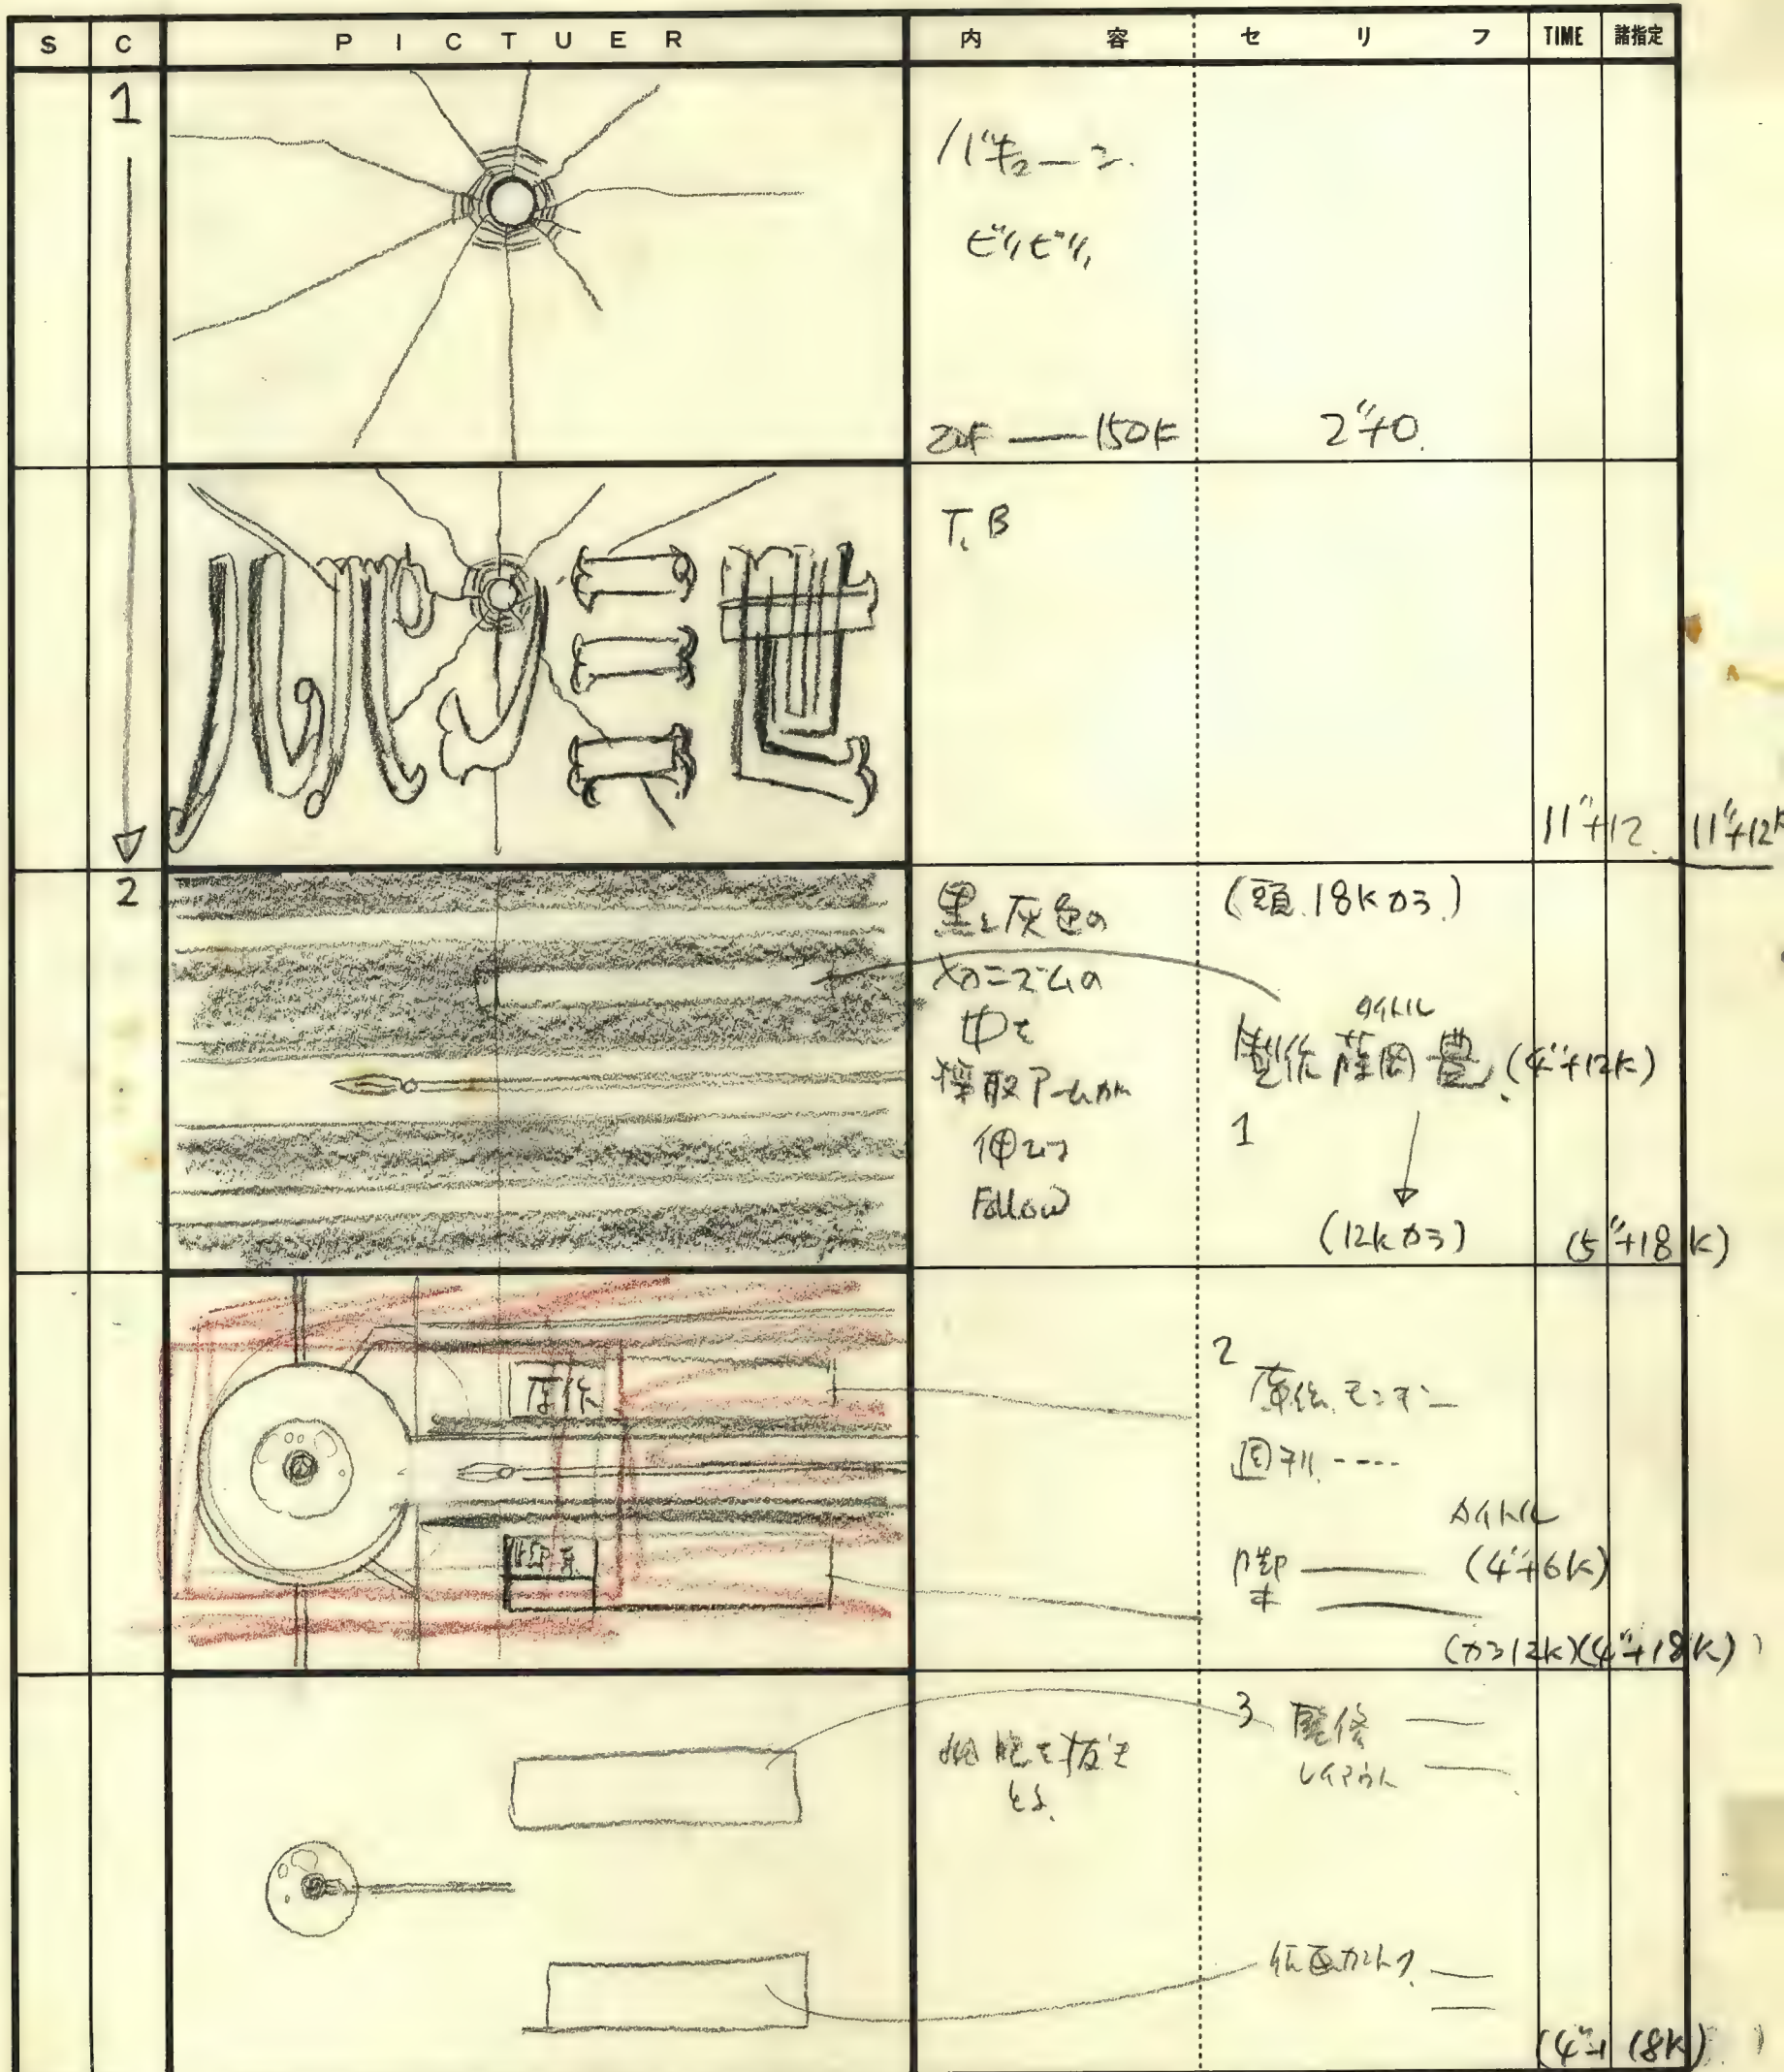 S C PICTUER 内容 セリフ TIME 諸指定
1
バキューン.
ビリビリ,
20F — 150F
2"+0.
ルパン三世
T.B
11"+12.
11"+12K
2
黒と灰色の
メカニズムの
中を
採取アームが
伸びる
Follow
(頭.18Kカラ.)
タイトル
製作 藤岡豊, (4"+12K)
1
(12Kカラ)
(5"+18K)
原作
脚本
2
原作.モンキー
タイトル
脚 — (4"+6K)
本 —
(カラ12K)(4"+18K)
細胞を抜き
とる.
3 監修 —
レイアウト —
作画カントク. —
(4"+18K)